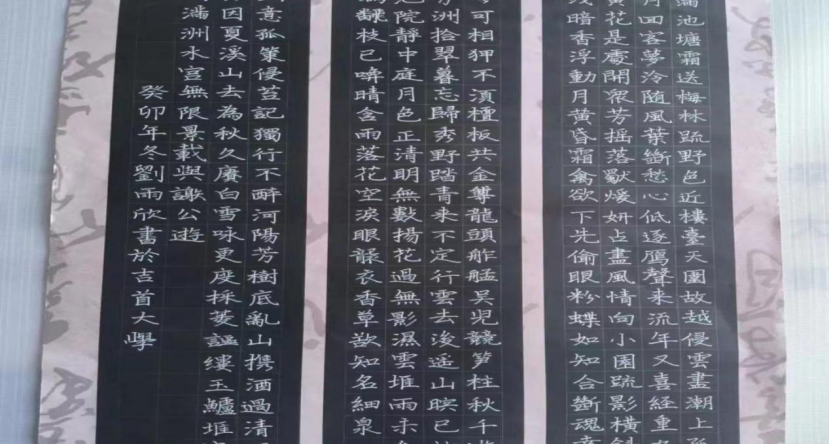 滿池塘霜送梅林疏野色近樓臺天圍故越侵雲盡潮上
月回客夢泠随風葉斷愁心低逐鴈聲来流年又喜經重
黄花是處開眾芳摇落獸煖妍占盡風情向小園疏影橫斜
淺暗香浮動月黄昏霜禽欲下先偷眼粉蝶如知合斷魂
可相狎不湏檀板共金尊龍頭舴艋吴児競笋柱秋千
洲拾翠暮忘歸秀野踏青来不定行雲去後遥山暝已
院静中庭月色正清明無數揚花過無影濕雲堆雨未
枝已啼晴含雨落花空淚眼衣香草歎知名細泉
意孤策侵苔記獨行不醉河陽芳樹底亂山携酒過清
因夏溪山去為秋久廢白雪咏更度採菱謳縷玉鱸堆
滿洲水宫無限景載與謝公遊
癸卯年冬劉雨欣書於吉首大學